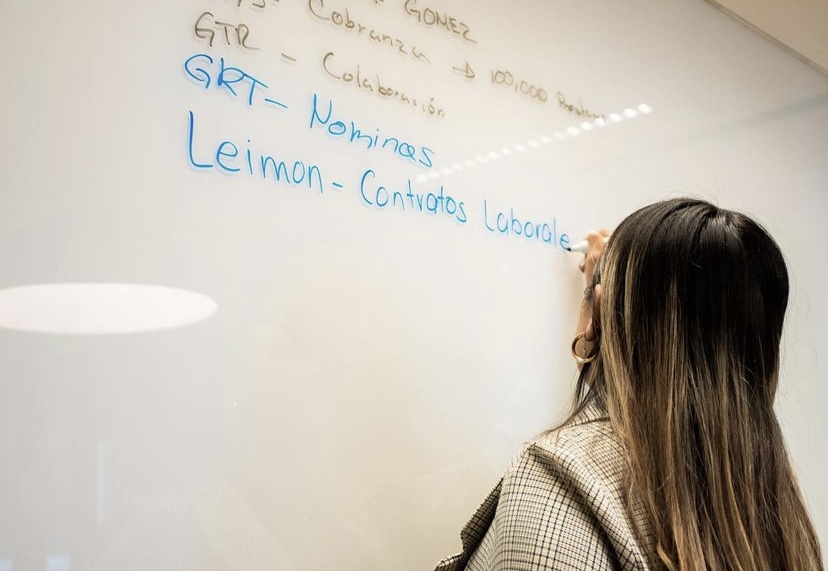 GOMEZ
Cobranza → 100,000
GTR - Colaboración
GRT- Nominas
Leimon - Contratos Laborale